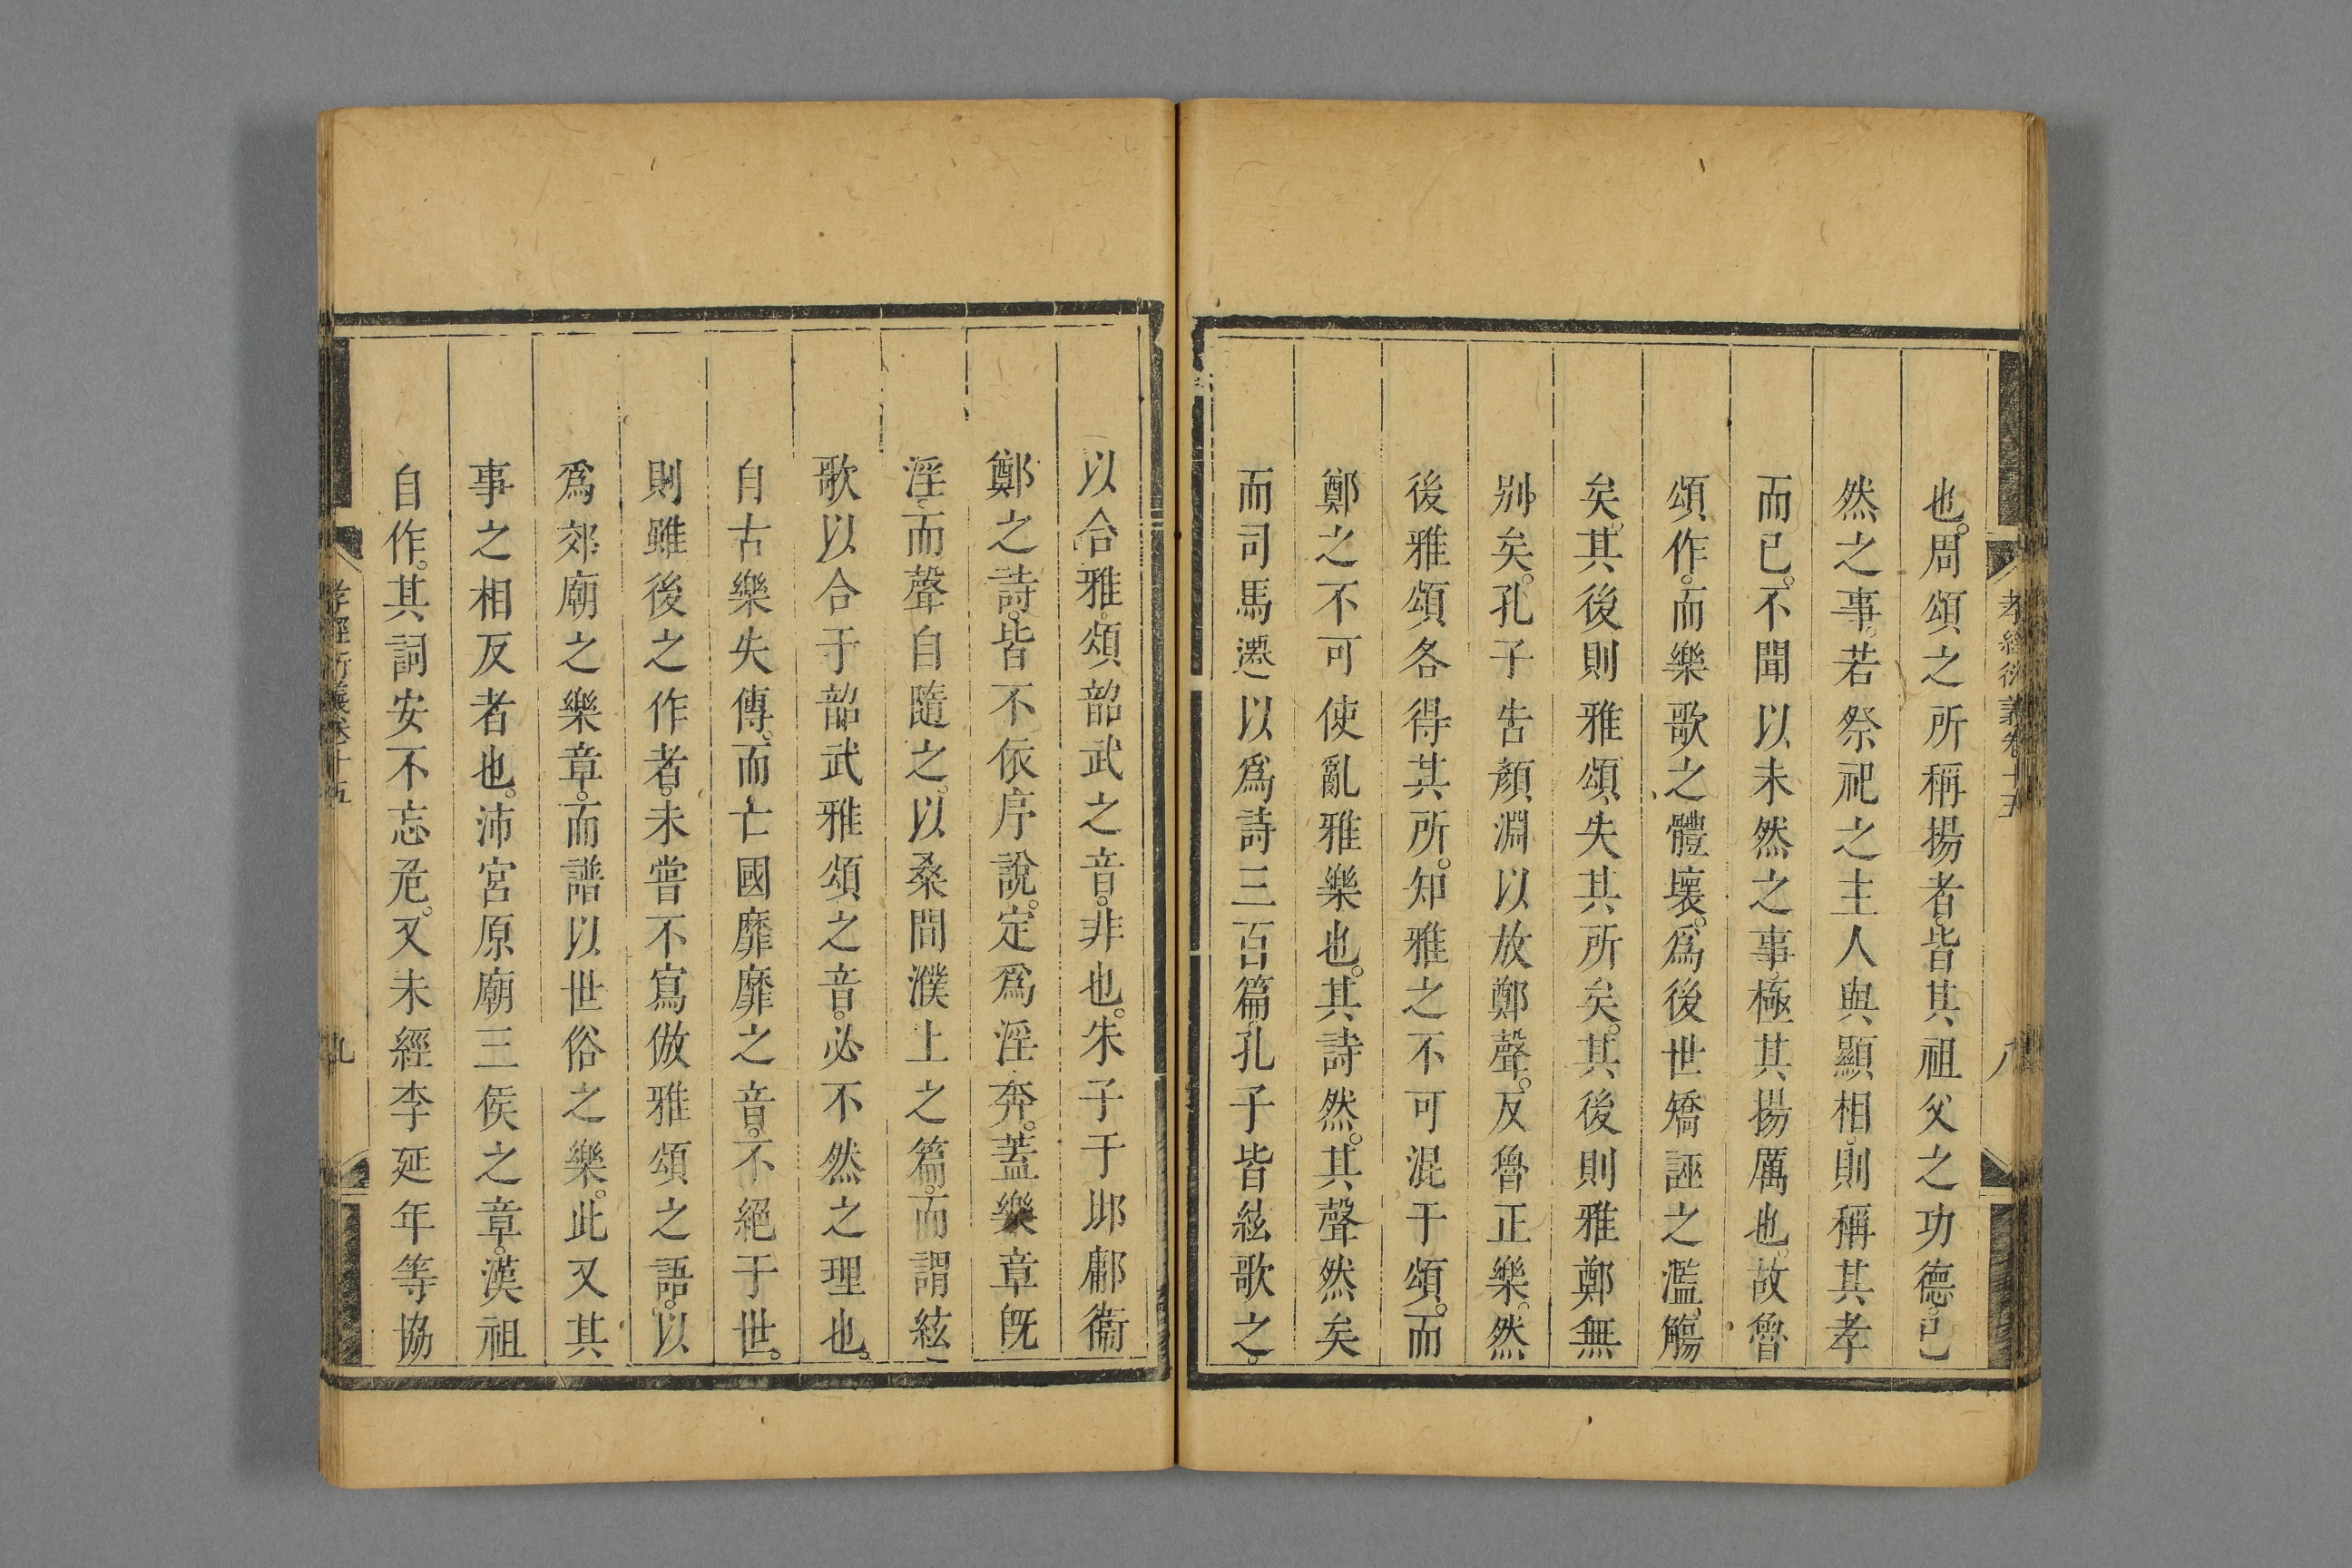 孝經衍義卷十五
八
也。周頌之所稱揚者。皆其祖父之功德。已
然之事。若祭祀之主人與顯相。則稱其孝
而已。不聞以未然之事。極其揚厲也。故魯
頌作。而樂歌之體壞。爲後世矯誣之濫觴
矣。其後則雅頌失其所矣。其後則雅鄭無
別矣。孔子告顏淵以放鄭聲。反魯正樂。然
後雅頌各得其所。知雅之不可混于頌。而
鄭之不可使亂雅樂也。其詩然。其聲然矣
而司馬遷以爲詩三百篇。孔子皆絃歌之。
以合雅頌韶武之音。非也。朱子于邶鄘衞
鄭之詩。皆不依序說。定爲淫奔。蓋樂章旣
淫。而聲自隨之。以桑間濮上之篇。而謂絃
歌以合于韶武雅頌之音。必不然之理也。
自古樂失傳。而亡國靡靡之音。不絕于世。
則雖後之作者。未嘗不寫倣雅頌之語。以
爲郊廟之樂章。而譜以世俗之樂。此又其
事之相反者也。沛宮原廟三侯之章。漢祖
自作。其詞安不忘危。又未經李延年等協
孝經衍義卷十五
九